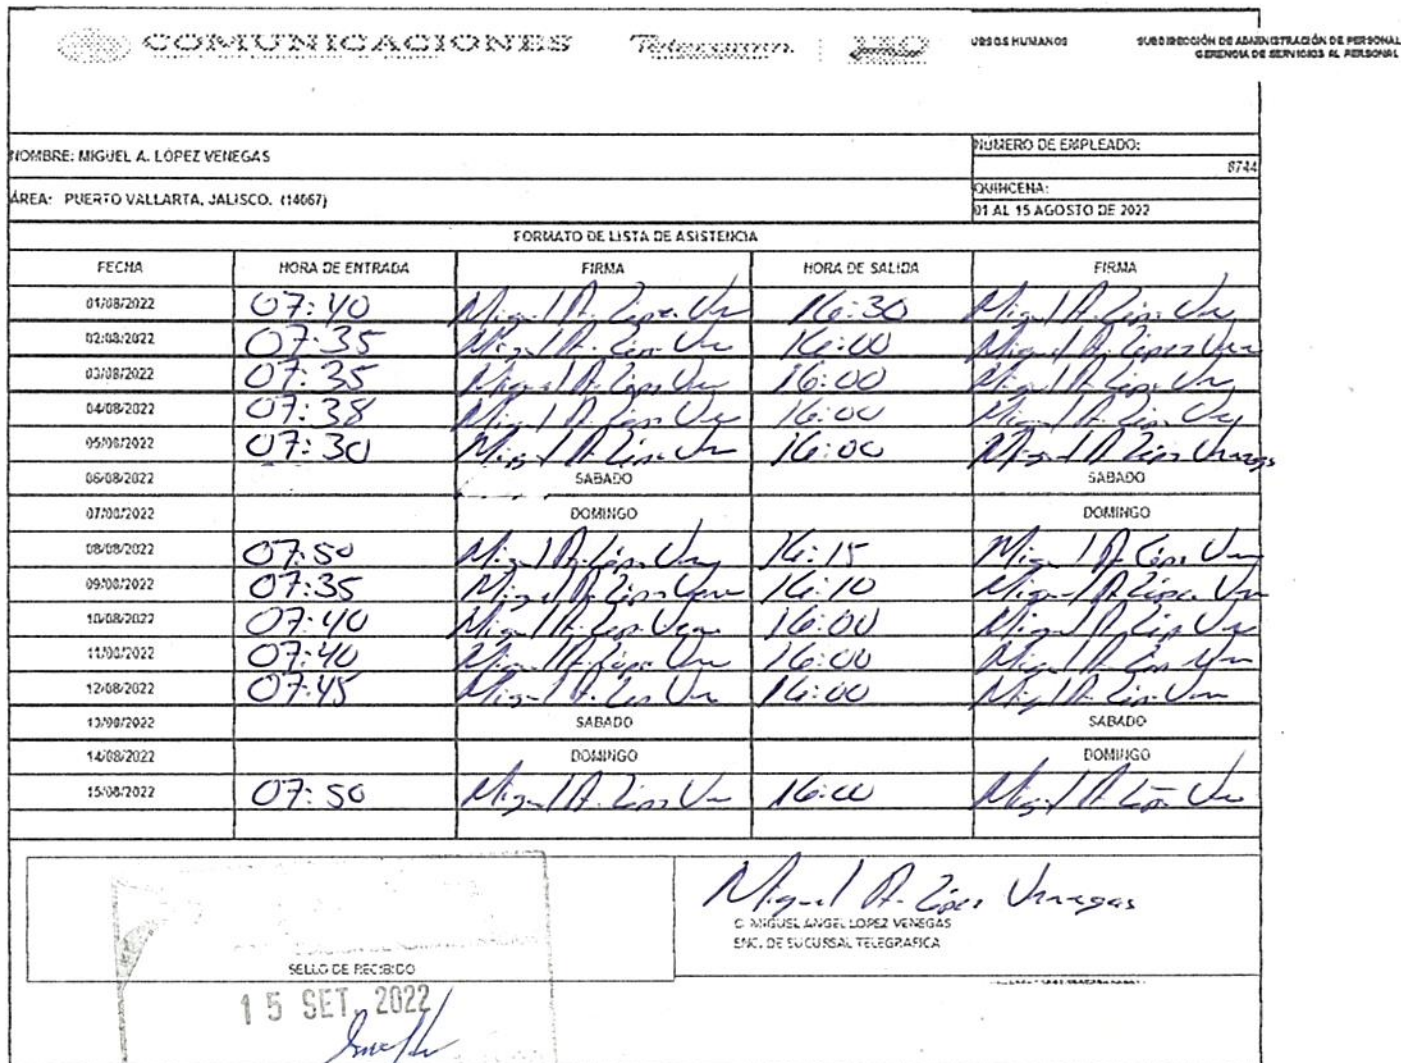 COMUNICACIONES Telecomm
URSOS HUMANOS
SUBDIRECCIÓN DE ADMINISTRACIÓN DE PERSONAL
GERENCIA DE SERVICIOS AL PERSONAL
NOMBRE: MIGUEL A. LÓPEZ VENEGAS
NÚMERO DE EMPLEADO:
8744
ÁREA: PUERTO VALLARTA, JALISCO. (14067)
QUINCENA:
01 AL 15 AGOSTO DE 2022
FORMATO DE LISTA DE ASISTENCIA
FECHA HORA DE ENTRADA FIRMA HORA DE SALIDA FIRMA
01/08/2022 07:40 Miguel A. López Ven 16:30 Miguel A. López Ven
02/08/2022 07:35 Miguel A. López Ven 16:00 Miguel A. López Ven
03/08/2022 07:35 Miguel A. López Ven 16:00 Miguel A. López Ven
04/08/2022 07:38 Miguel A. López Ven 16:00 Miguel A. López Ven
05/08/2022 07:30 Miguel A. López Ven 16:00 Miguel A. López Venegas
06/08/2022 SABADO SABADO
07/08/2022 DOMINGO DOMINGO
08/08/2022 07:50 Miguel A. López Ven 16:15 Miguel A. López Ven
09/08/2022 07:35 Miguel A. López Ven 16:10 Miguel A. López Ven
10/08/2022 07:40 Miguel A. López Ven 16:00 Miguel A. López Ven
11/08/2022 07:40 Miguel A. López Ven 16:00 Miguel A. López Ven
12/08/2022 07:45 Miguel A. López Ven 16:00 Miguel A. López Ven
13/08/2022 SABADO SABADO
14/08/2022 DOMINGO DOMINGO
15/08/2022 07:50 Miguel A. López Ven 16:00 Miguel A. López Ven
Miguel A. López Venegas
C. MIGUEL ANGEL LOPEZ VENEGAS
ENC. DE SUCURSAL TELEGRAFICA
SELLO DE RECIBIDO
15 SET. 2022